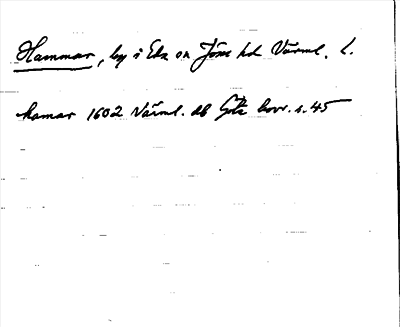 Hammar, by i Eda sn Jösse hd Värml. L.
hamar 1602 Värml. db Göta hovr. s. 45